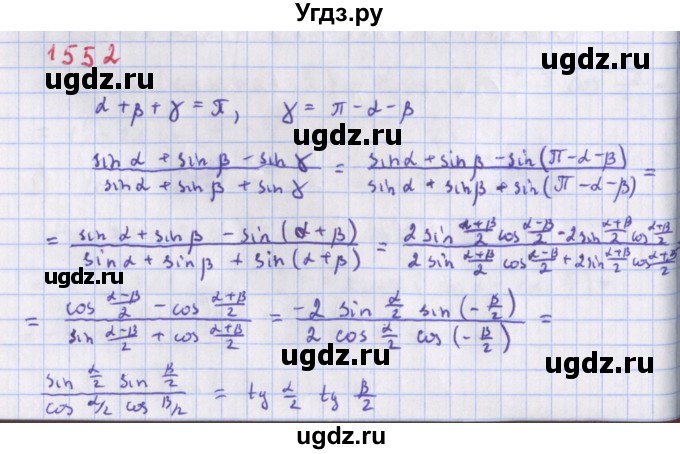 Угдз.ру
1552
ugdz.ru ugdz.ru
α + β + γ = π, γ = π - α - β
ugdz.ru
(sin α + sin β - sin γ)/(sin α + sin β + sin γ) = (sin α + sin β - sin(π - α - β))/(sin α + sin β + sin(π - α - β)) =
ugdz.ru ugdz.ru
= (sin α + sin β - sin(α + β))/(sin α + sin β + sin(α + β)) = (2 sin (α+β)/2 cos (α-β)/2 - 2 sin (α+β)/2 cos (α+β)/2)/(2 sin (α+β)/2 cos (α-β)/2 + 2 sin (α+β)/2 cos (α+β)/2)
ugdz.ru
= (cos (α-β)/2 - cos (α+β)/2)/(sin (α-β)/2 + cos (α+β)/2) = (-2 sin α/2 sin(-β/2))/(2 cos α/2 cos(-β/2)) =
ugdz.ru ugdz.ru
(sin α/2 sin β/2)/(cos α/2 cos β/2) = tg α/2 tg β/2
ugdz.ru